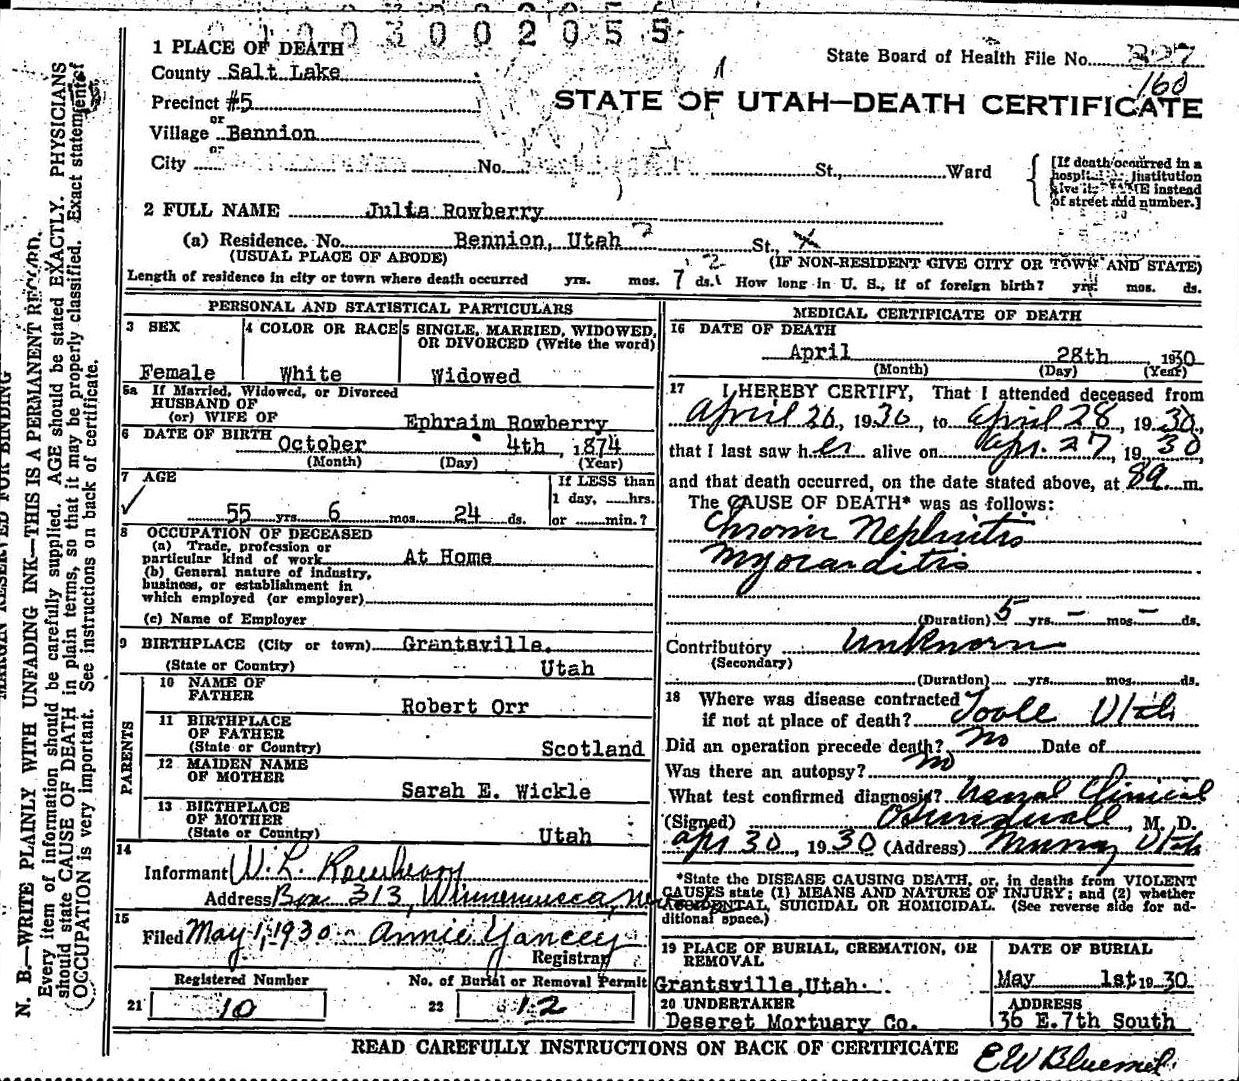 0 1 0 0 3 0 0 2 0 5 5
1 PLACE OF DEATH
County Salt Lake
Precinct #5
or
Village Bennion
or
City No. St., Ward
State Board of Health File No.
160
STATE OF UTAH—DEATH CERTIFICATE
[If death occurred in a
hospital or institution
give its NAME instead
of street and number.]
2 FULL NAME Julia Rowberry
(a) Residence. No. Bennion, Utah St.,
(USUAL PLACE OF ABODE) (IF NON-RESIDENT GIVE CITY OR TOWN AND STATE)
Length of residence in city or town where death occurred yrs. mos. 7 ds. How long in U. S., if of foreign birth? yrs. mos. ds.
PERSONAL AND STATISTICAL PARTICULARS
3 SEX
Female
4 COLOR OR RACE
White
5 SINGLE, MARRIED, WIDOWED,
OR DIVORCED (Write the word)
Widowed
5a If Married, Widowed, or Divorced
HUSBAND OF
(or) WIFE OF Ephraim Rowberry
6 DATE OF BIRTH October 4th, 1874
(Month) (Day) (Year)
7 AGE
55 yrs. 6 mos. 24 ds.
If LESS than
1 day, hrs.
or min.?
8 OCCUPATION OF DECEASED
(a) Trade, profession or
particular kind of work At Home
(b) General nature of industry,
business, or establishment in
which employed (or employer)
(c) Name of Employer
9 BIRTHPLACE (City or town) Grantsville.
(State or Country) Utah
PARENTS
10 NAME OF
FATHER Robert Orr
11 BIRTHPLACE
OF FATHER
(State or Country) Scotland
12 MAIDEN NAME
OF MOTHER Sarah E. Wickle
13 BIRTHPLACE
OF MOTHER
(State or Country) Utah
14
Informant W. L. Rowberry
Address Box 313, Winnemucca, Nev
15
Filed May 1, 1930 Annie Yancey
Registrar
Registered Number No. of Burial or Removal Permit
21 10 22 12
MEDICAL CERTIFICATE OF DEATH
16 DATE OF DEATH
April 28th 1930
(Month) (Day) (Year)
17 I HEREBY CERTIFY, That I attended deceased from
April 26, 1930, to April 28, 1930,
that I last saw her alive on Apr. 27, 1930,
and that death occurred, on the date stated above, at m.
The CAUSE OF DEATH* was as follows:
Chronic Nephritis
Myocarditis
(Duration) 5 yrs. – mos. – ds.
Contributory Unknown
(Secondary)
(Duration) yrs. mos. ds.
18 Where was disease contracted
if not at place of death? Tooele Utah
Did an operation precede death? no Date of
Was there an autopsy? no
What test confirmed diagnosis? Clinical
(Signed) M. D.
Apr 30, 1930 (Address) Murray Utah
*State the DISEASE CAUSING DEATH, or, in deaths from VIOLENT
CAUSES state (1) MEANS AND NATURE OF INJURY; and (2) whether
ACCIDENTAL, SUICIDAL OR HOMICIDAL. (See reverse side for ad-
ditional space.)
19 PLACE OF BURIAL, CREMATION, OR
REMOVAL
Grantsville, Utah.
DATE OF BURIAL
May 1st 1930
20 UNDERTAKER
Deseret Mortuary Co.
ADDRESS
36 E. 7th South
READ CAREFULLY INSTRUCTIONS ON BACK OF CERTIFICATE
MARGIN RESERVED FOR BINDING
N. B.—WRITE PLAINLY WITH UNFADING INK—THIS IS A PERMANENT RECORD.
Every item of information should be carefully supplied. AGE should be stated EXACTLY. PHYSICIANS
should state CAUSE OF DEATH in plain terms, so that it may be properly classified. Exact statement of
OCCUPATION is very important. See instructions on back of certificate.